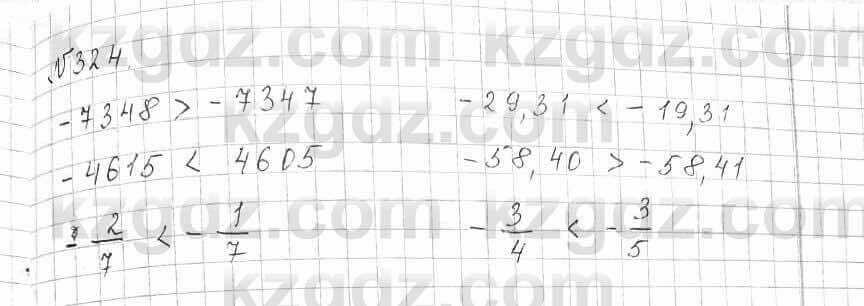 kzgdz.com kzgdz.com
№324.
-7348 > -7347 -29,31 < -19,31
kzgdz.com
-4615 < 4605 -58,40 > -58,41
kzgdz.com kzgdz.com
-2/7 < -1/7 -3/4 < -3/5
kzgdz.com